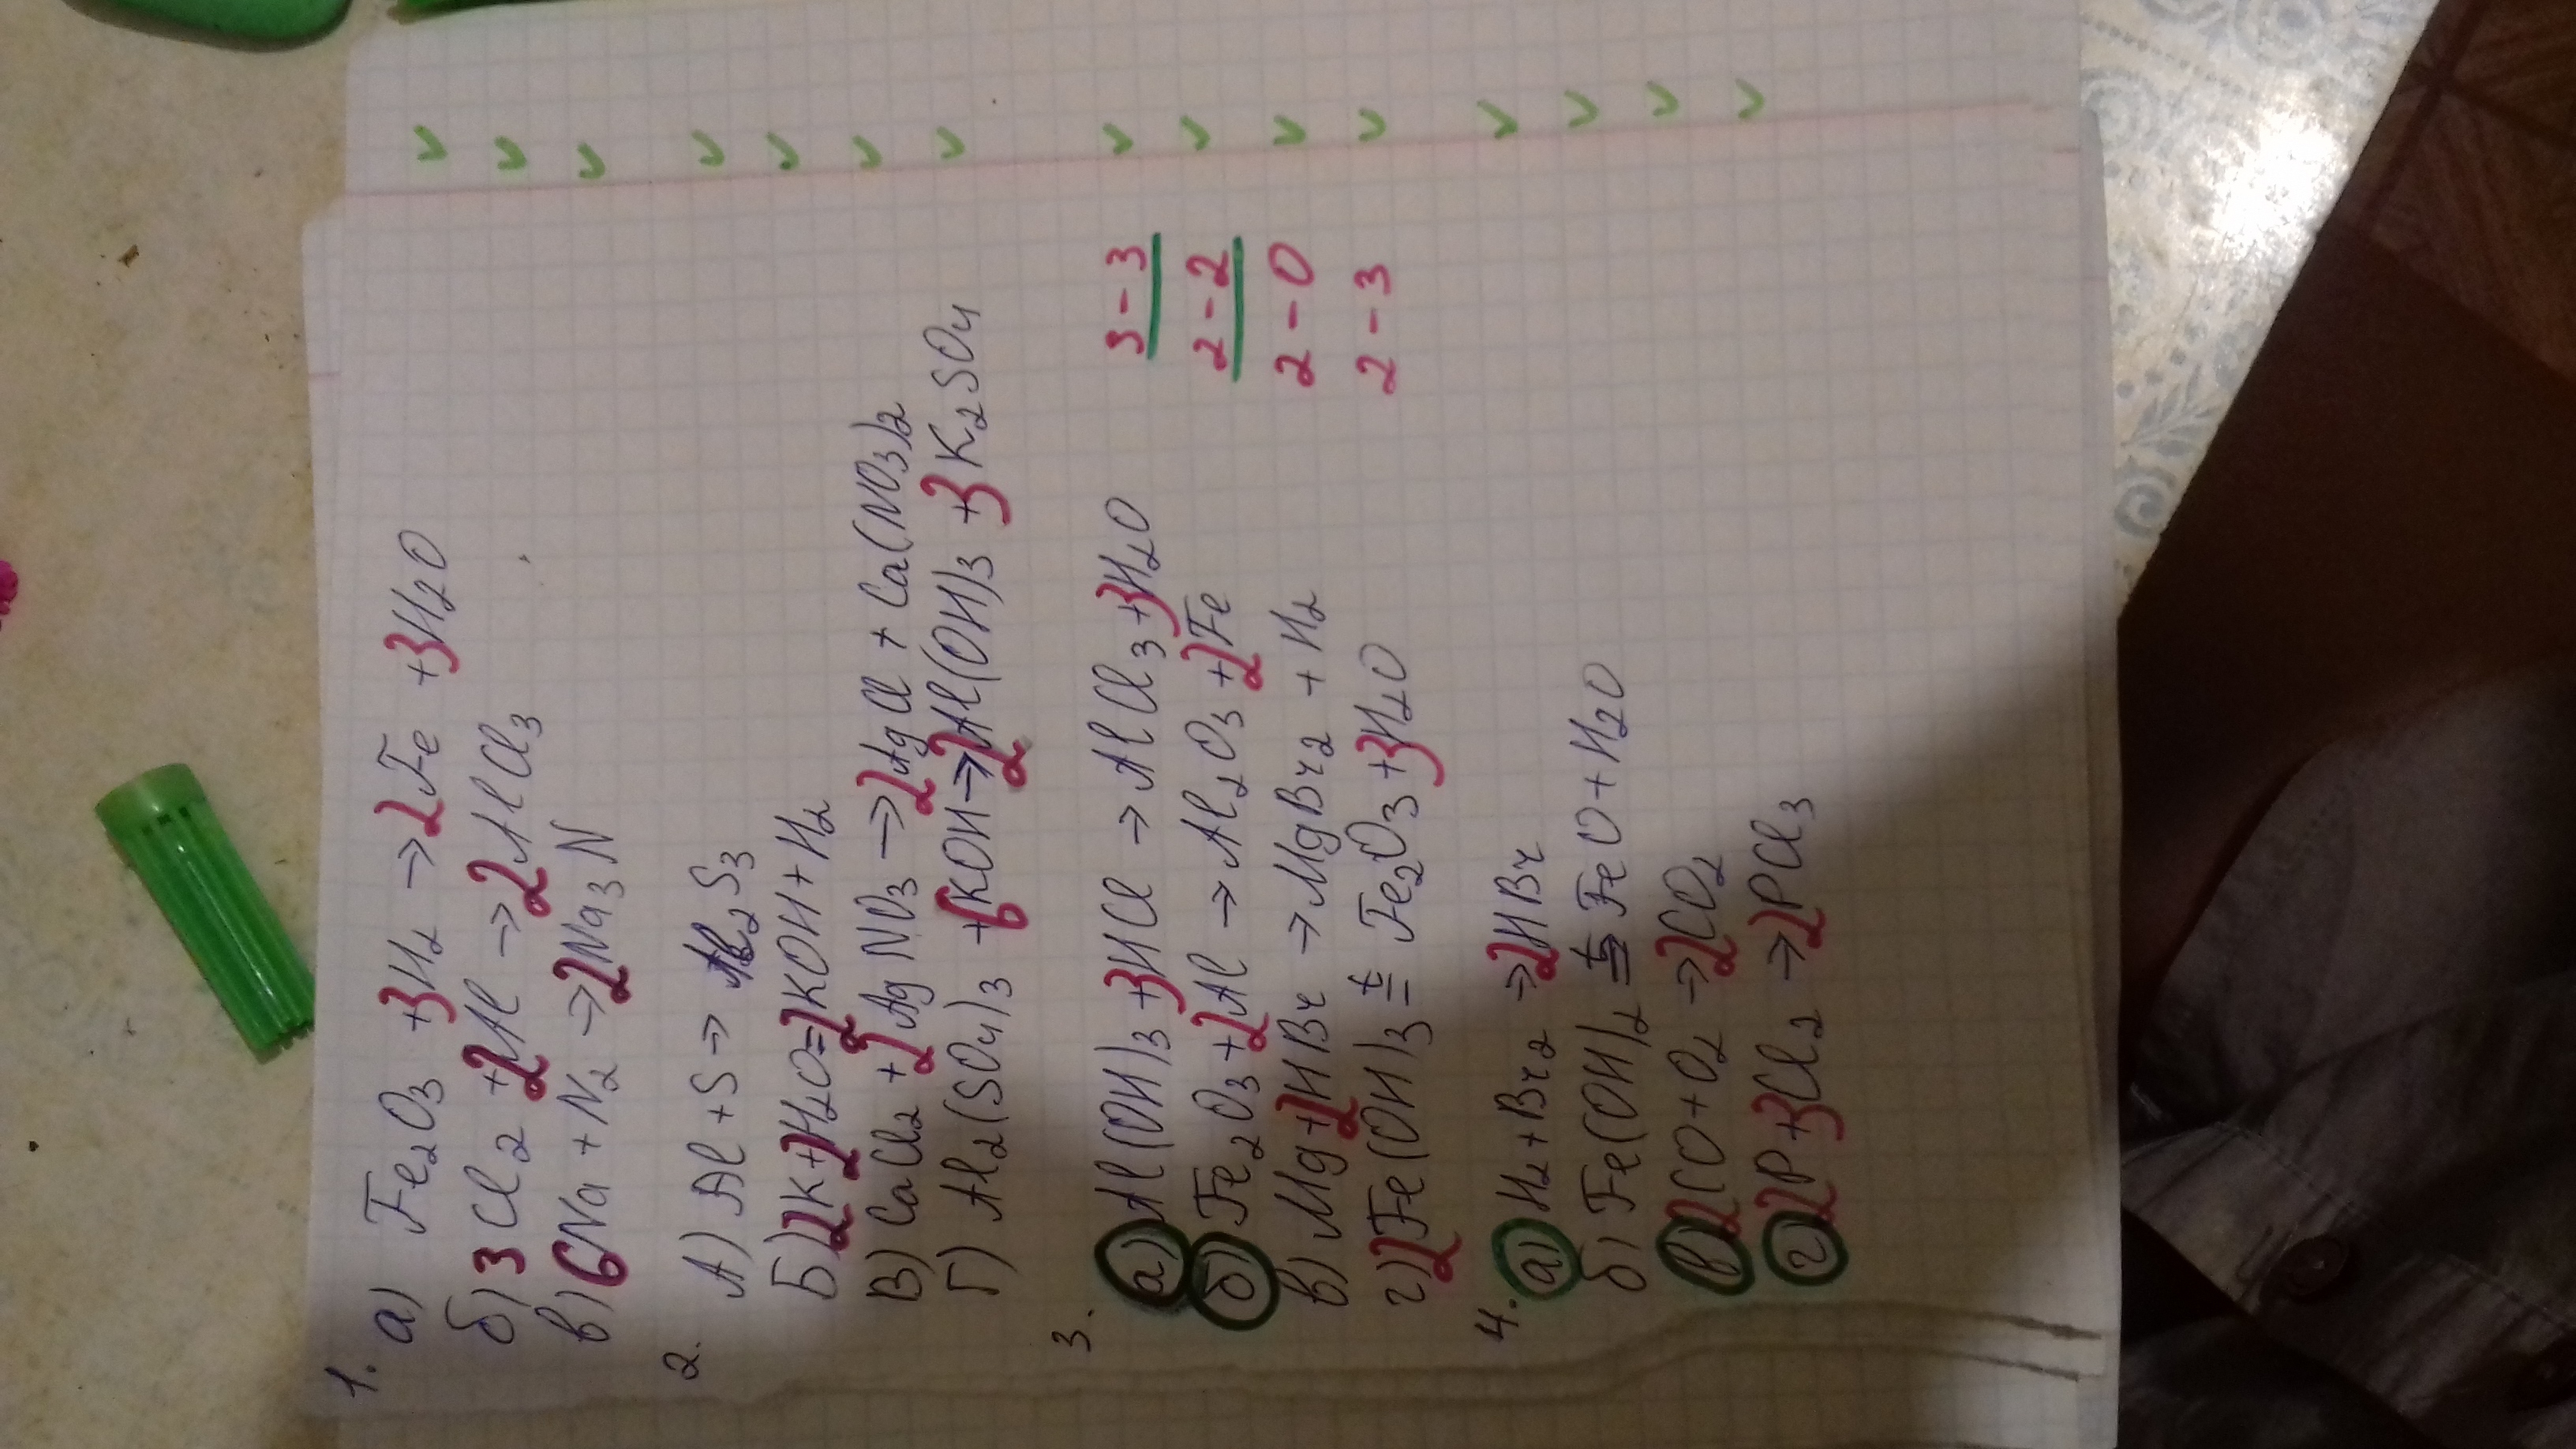 1.
а) Fe₂O₃ +3H₂ → 2Fe +3H₂O
б) 3Cl₂ +2Al → 2AlCl₃
в) 6Na + N₂ → 2Na₃N
2.
А) Al + S → Al₂S₃
Б) 2K+2H₂O=2KOH+H₂
В) CaCl₂ +2AgNO₃ → 2AgCl + Ca(NO₃)₂
Г) Al₂(SO₄)₃ +6KOH→2Al(OH)₃ +3K₂SO₄
3.
а) Al(OH)₃ +3HCl → AlCl₃+3H₂O 3-3
б) Fe₂O₃+2Al → Al₂O₃ +2Fe 2-2
в) Mg+2HBr → MgBr₂ + H₂ 2-0
г) 2Fe(OH)₃ =t Fe₂O₃+3H₂O 2-3
4.
а) H₂+Br₂ → 2HBr
б) Fe(OH)₂ =t FeO+H₂O
в) 2CO+O₂ → 2CO₂
г) 2P+3Cl₂ → 2PCl₃